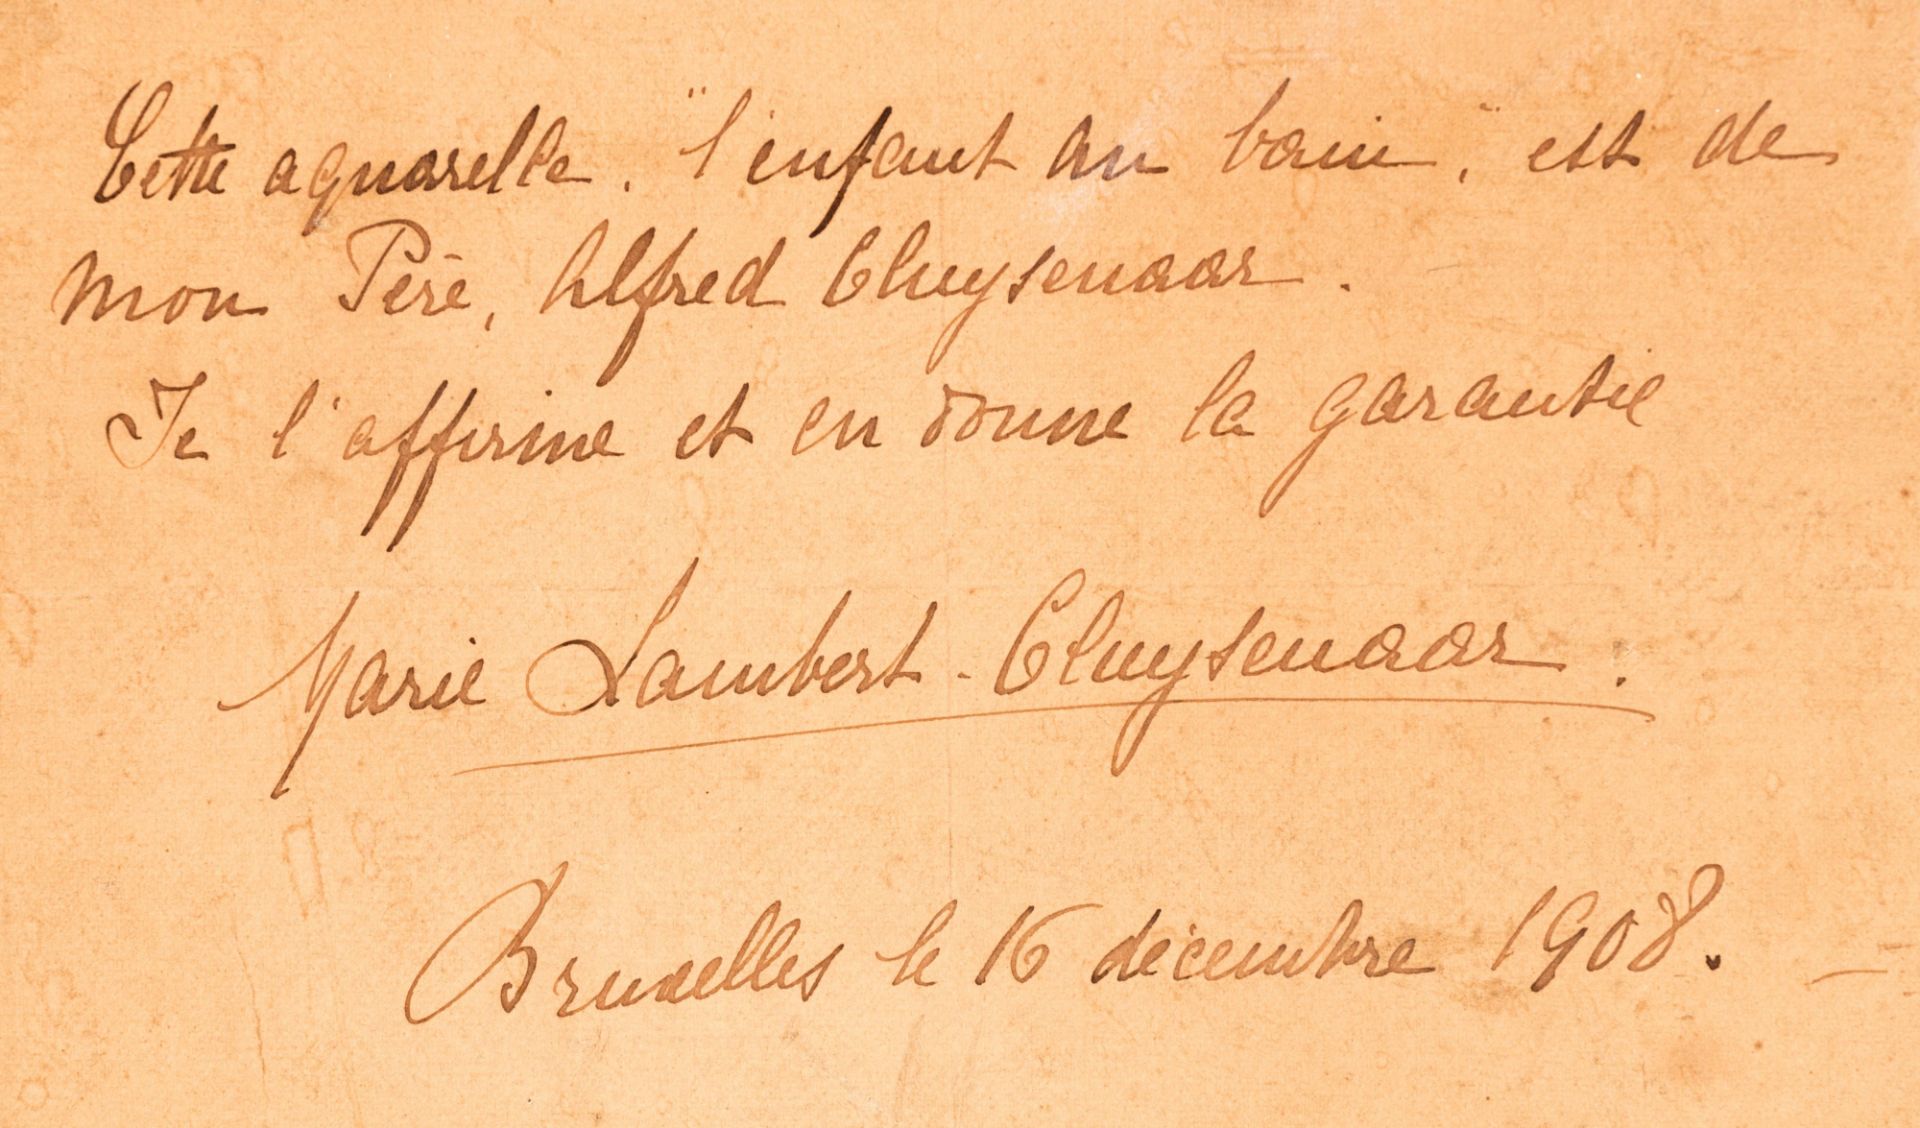 Cette aquarelle. "l'enfant au bain", est de
mon Père, Alfred Cluysenaar.
Je l'affirme et en donne la garantie
Marie Lambert-Cluysenaar.
Bruxelles le 16 décembre 1908.